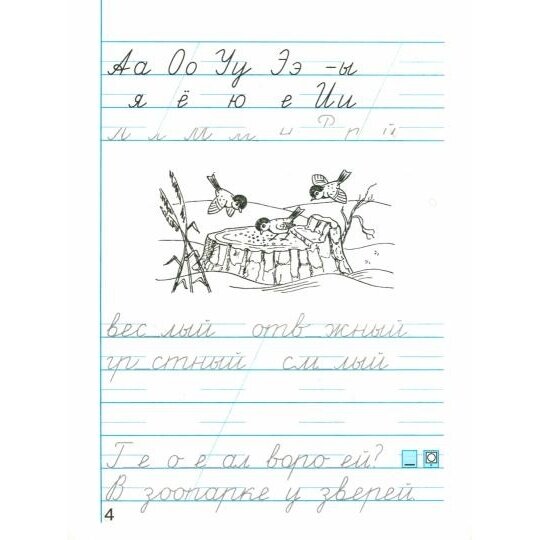 Аа Оо Уу Ээ -ы
я ё ю е Ии
л л м м н Р п й
вес лый отв жный
гр стный см лый
Г е о е ал воро ей?
В зоопарке у зверей.
4